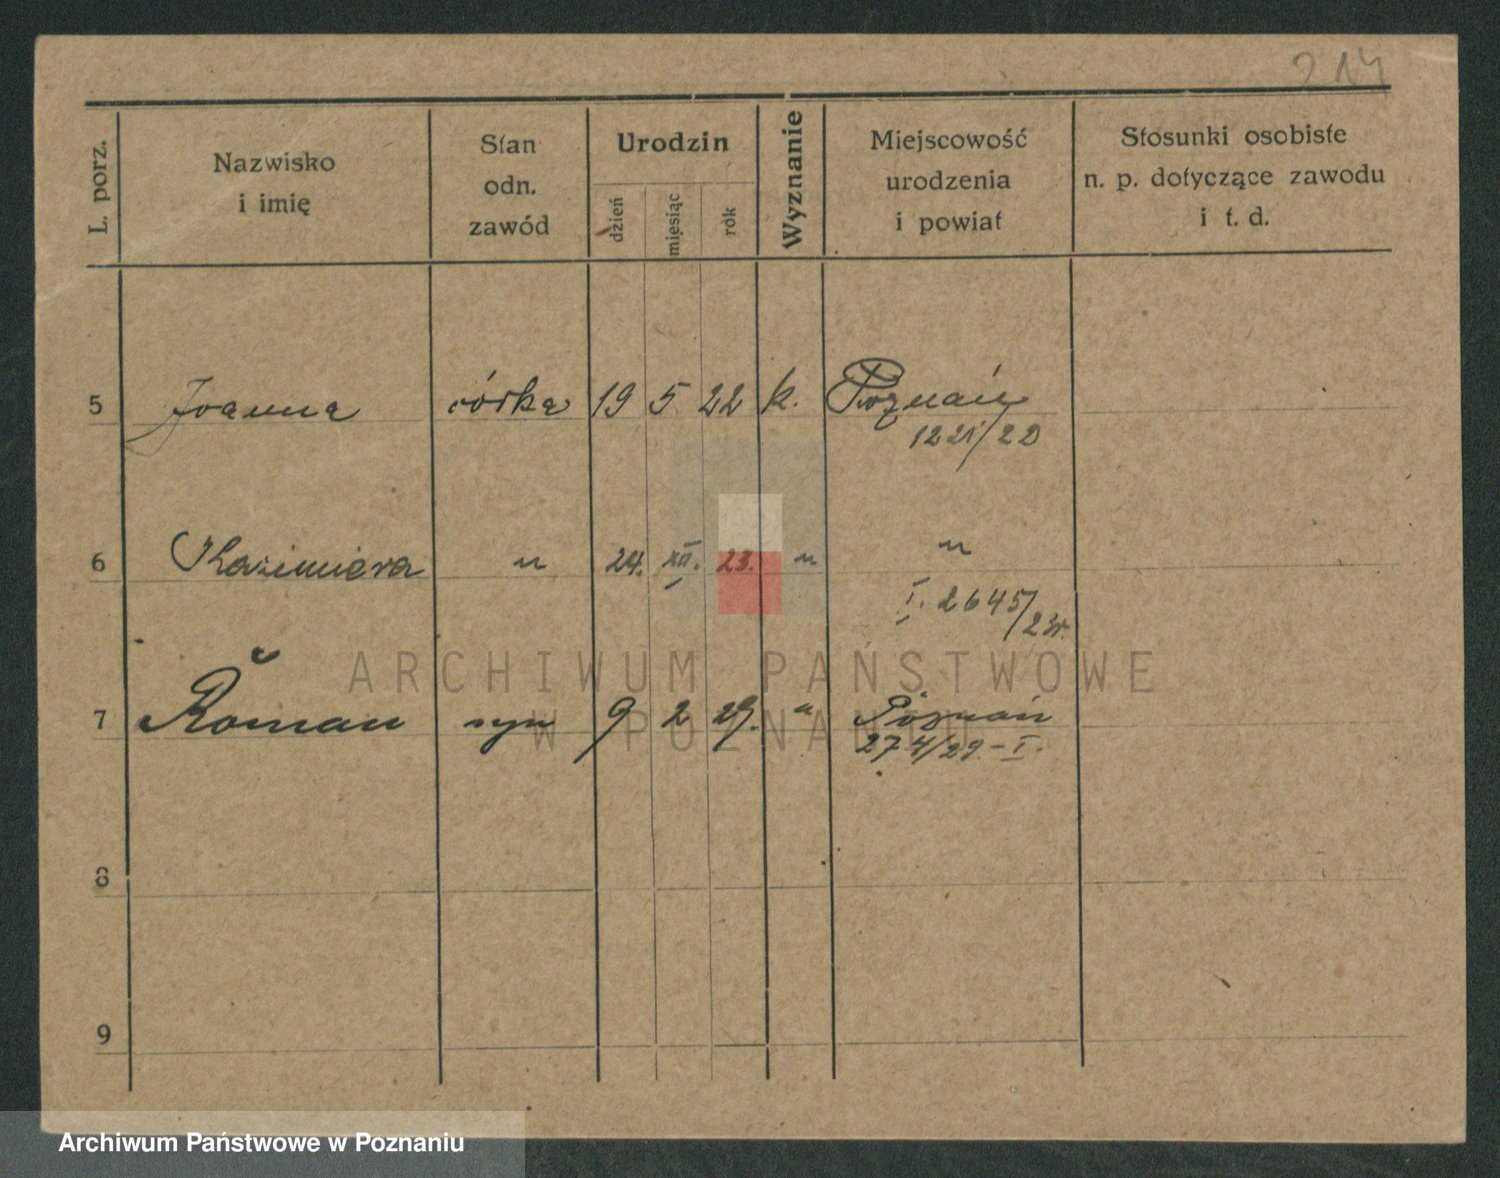 214
L. porz.
Nazwisko
i imię
Stan
odn.
zawód
Urodzin
dzień
miesiąc
rok
Wyznanie
Miejscowość
urodzenia
i powiat
Stosunki osobiste
n. p. dotyczące zawodu
i t. d.
5 Joanna córka 19 5 22 k. Poznań
1221/22
6 Kazimiera " 24. XII. 23. " "
I. 2645/23r.
7 Roman syn 9 2 29. " Poznań
274/29-I.
8
9
ARCHIWUM PAŃSTWOWE
W POZNANIU
Archiwum Państwowe w Poznaniu